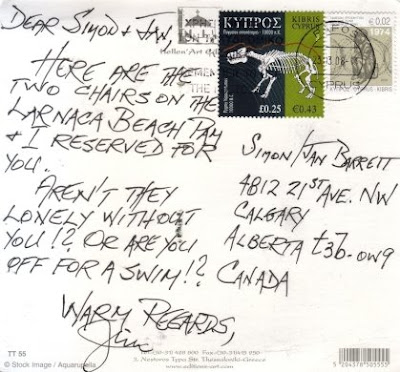 DEAR SIMON & JAN,
HERE ARE THE
TWO CHAIRS ON THE
LARNACA BEACH PAM
& I RESERVED FOR
YOU.
AREN'T THEY
LONELY WITHOUT
YOU!? OR ARE YOU
OFF FOR A SWIM!?
WARM REGARDS,
Jim
SIMON/JAN BARRETT
4812 21ST AVE. NW
CALGARY
ALBERTA t3b-0W9
CANADA
ΚΥΠΡΟΣ
KIBRIS
CYPRUS
£0.25
€0.43
€0.02
1974
TT 55
© Stock Image / Aquarupella
5 204378 505555